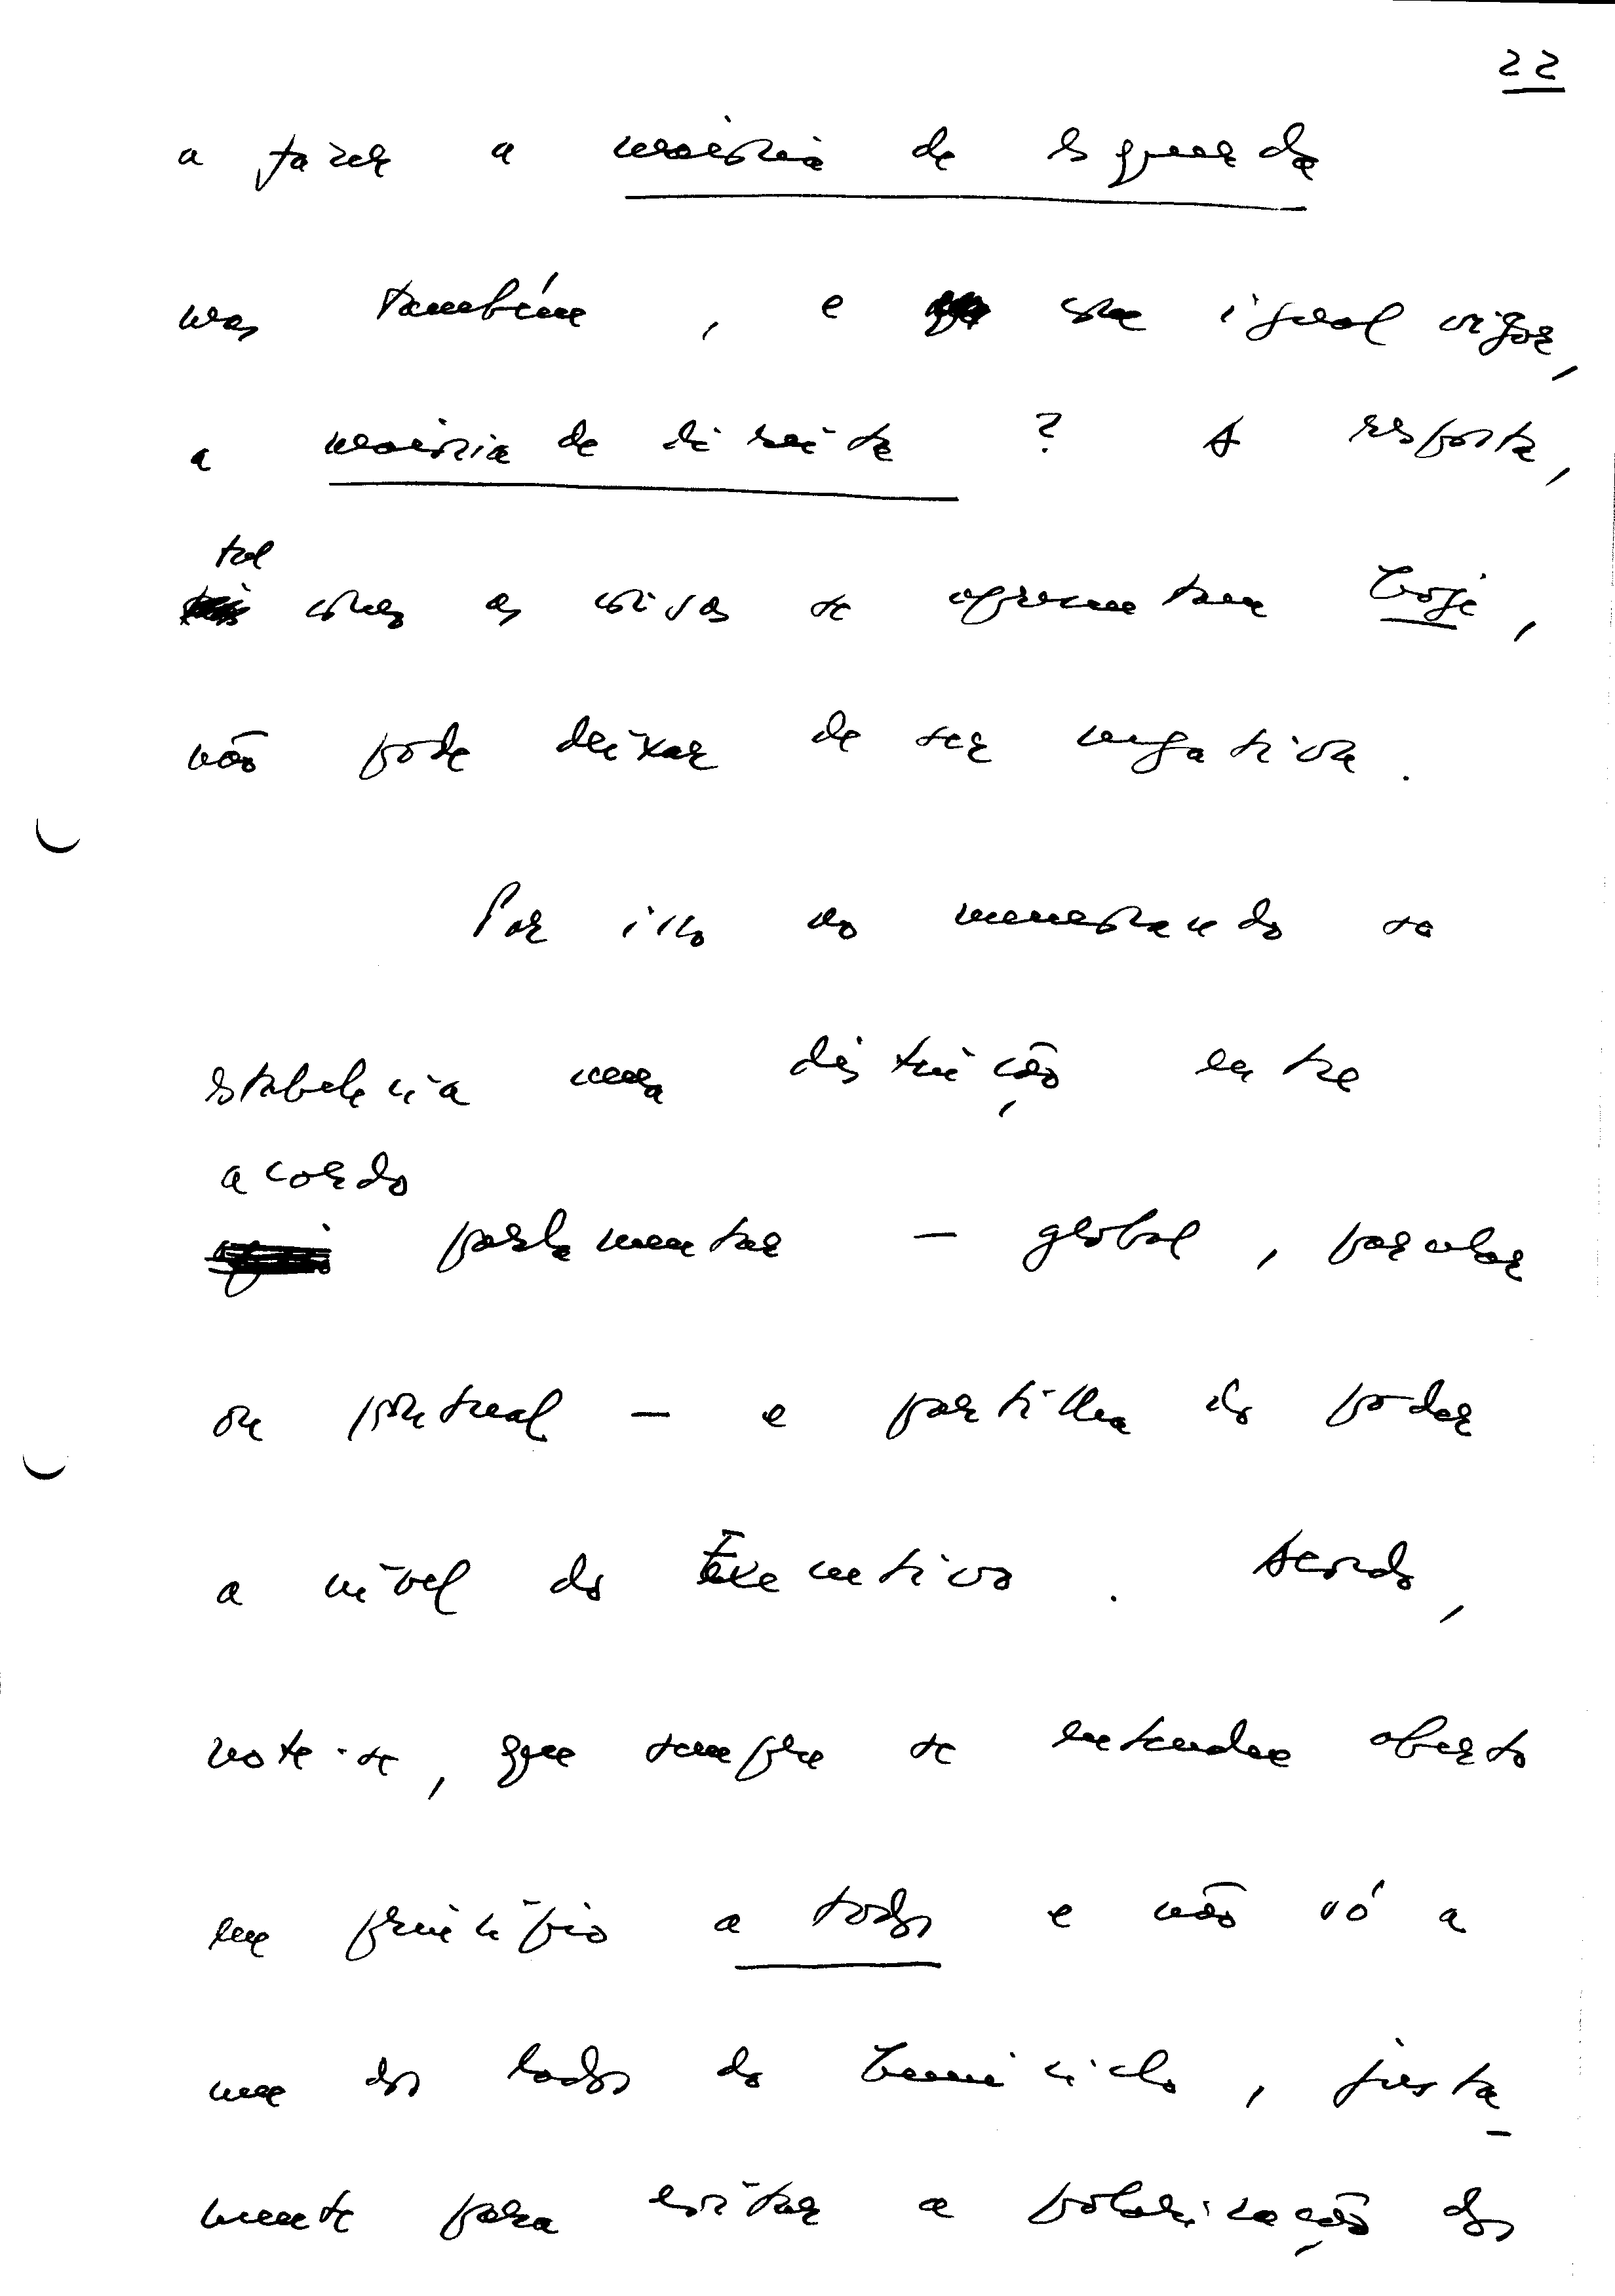 22
a fazer a maioria de esquerda
mas também, e com igual vigor,
a maioria de direita? A resposta,
tal
como as coisas se apresentam hoje,
não pode deixar de ser negativa.
Por isso no memorando se
estabelecia uma distinção entre
acordo
parlamentar — global, parcelar
ou pontual — e partilha do poder
a nível do Executivo. Acordo,
note-se, que sempre se entendeu aberto
em princípio a todos e não só a
um dos lados do hemiciclo, justa-
mente para evitar a polarização dos